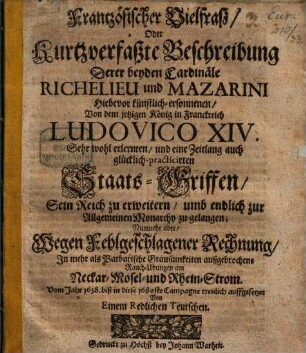 Frantzösischer Vielfraß/
Oder
Kurtzverfaßte Beschreibung
Derer beyden Cardinäle
RICHELIEU und MAZARINI
Hiebevor künstlich-ersonnenen/
Von dem jetzigen König in Franckreich
LUDOVICO XIV.
Sehr wohl erlernten/ und eine Zeitlang auch
glücklich-practicirten
Staats-Griffen/
Sein Reich zu erweitern/ umb endlich zur
Allgemeinen Monarchy zu gelangen;
Nunmehr aber/
Wegen Fehlgeschlagener Rechnung/
In mehr als Barbarische Grausamkeiten ausgebrochen
Raub-Ubungen am
Neckar-Mosel-und Rhein-Strom.
Vom Jahr 1638. biß in diese 1689ste Campagne treulich auffgesetzet
Von
Einem Redlichen Teutschen.
Gedruckt zu Höchst bey Johann Warheit.
Eur.